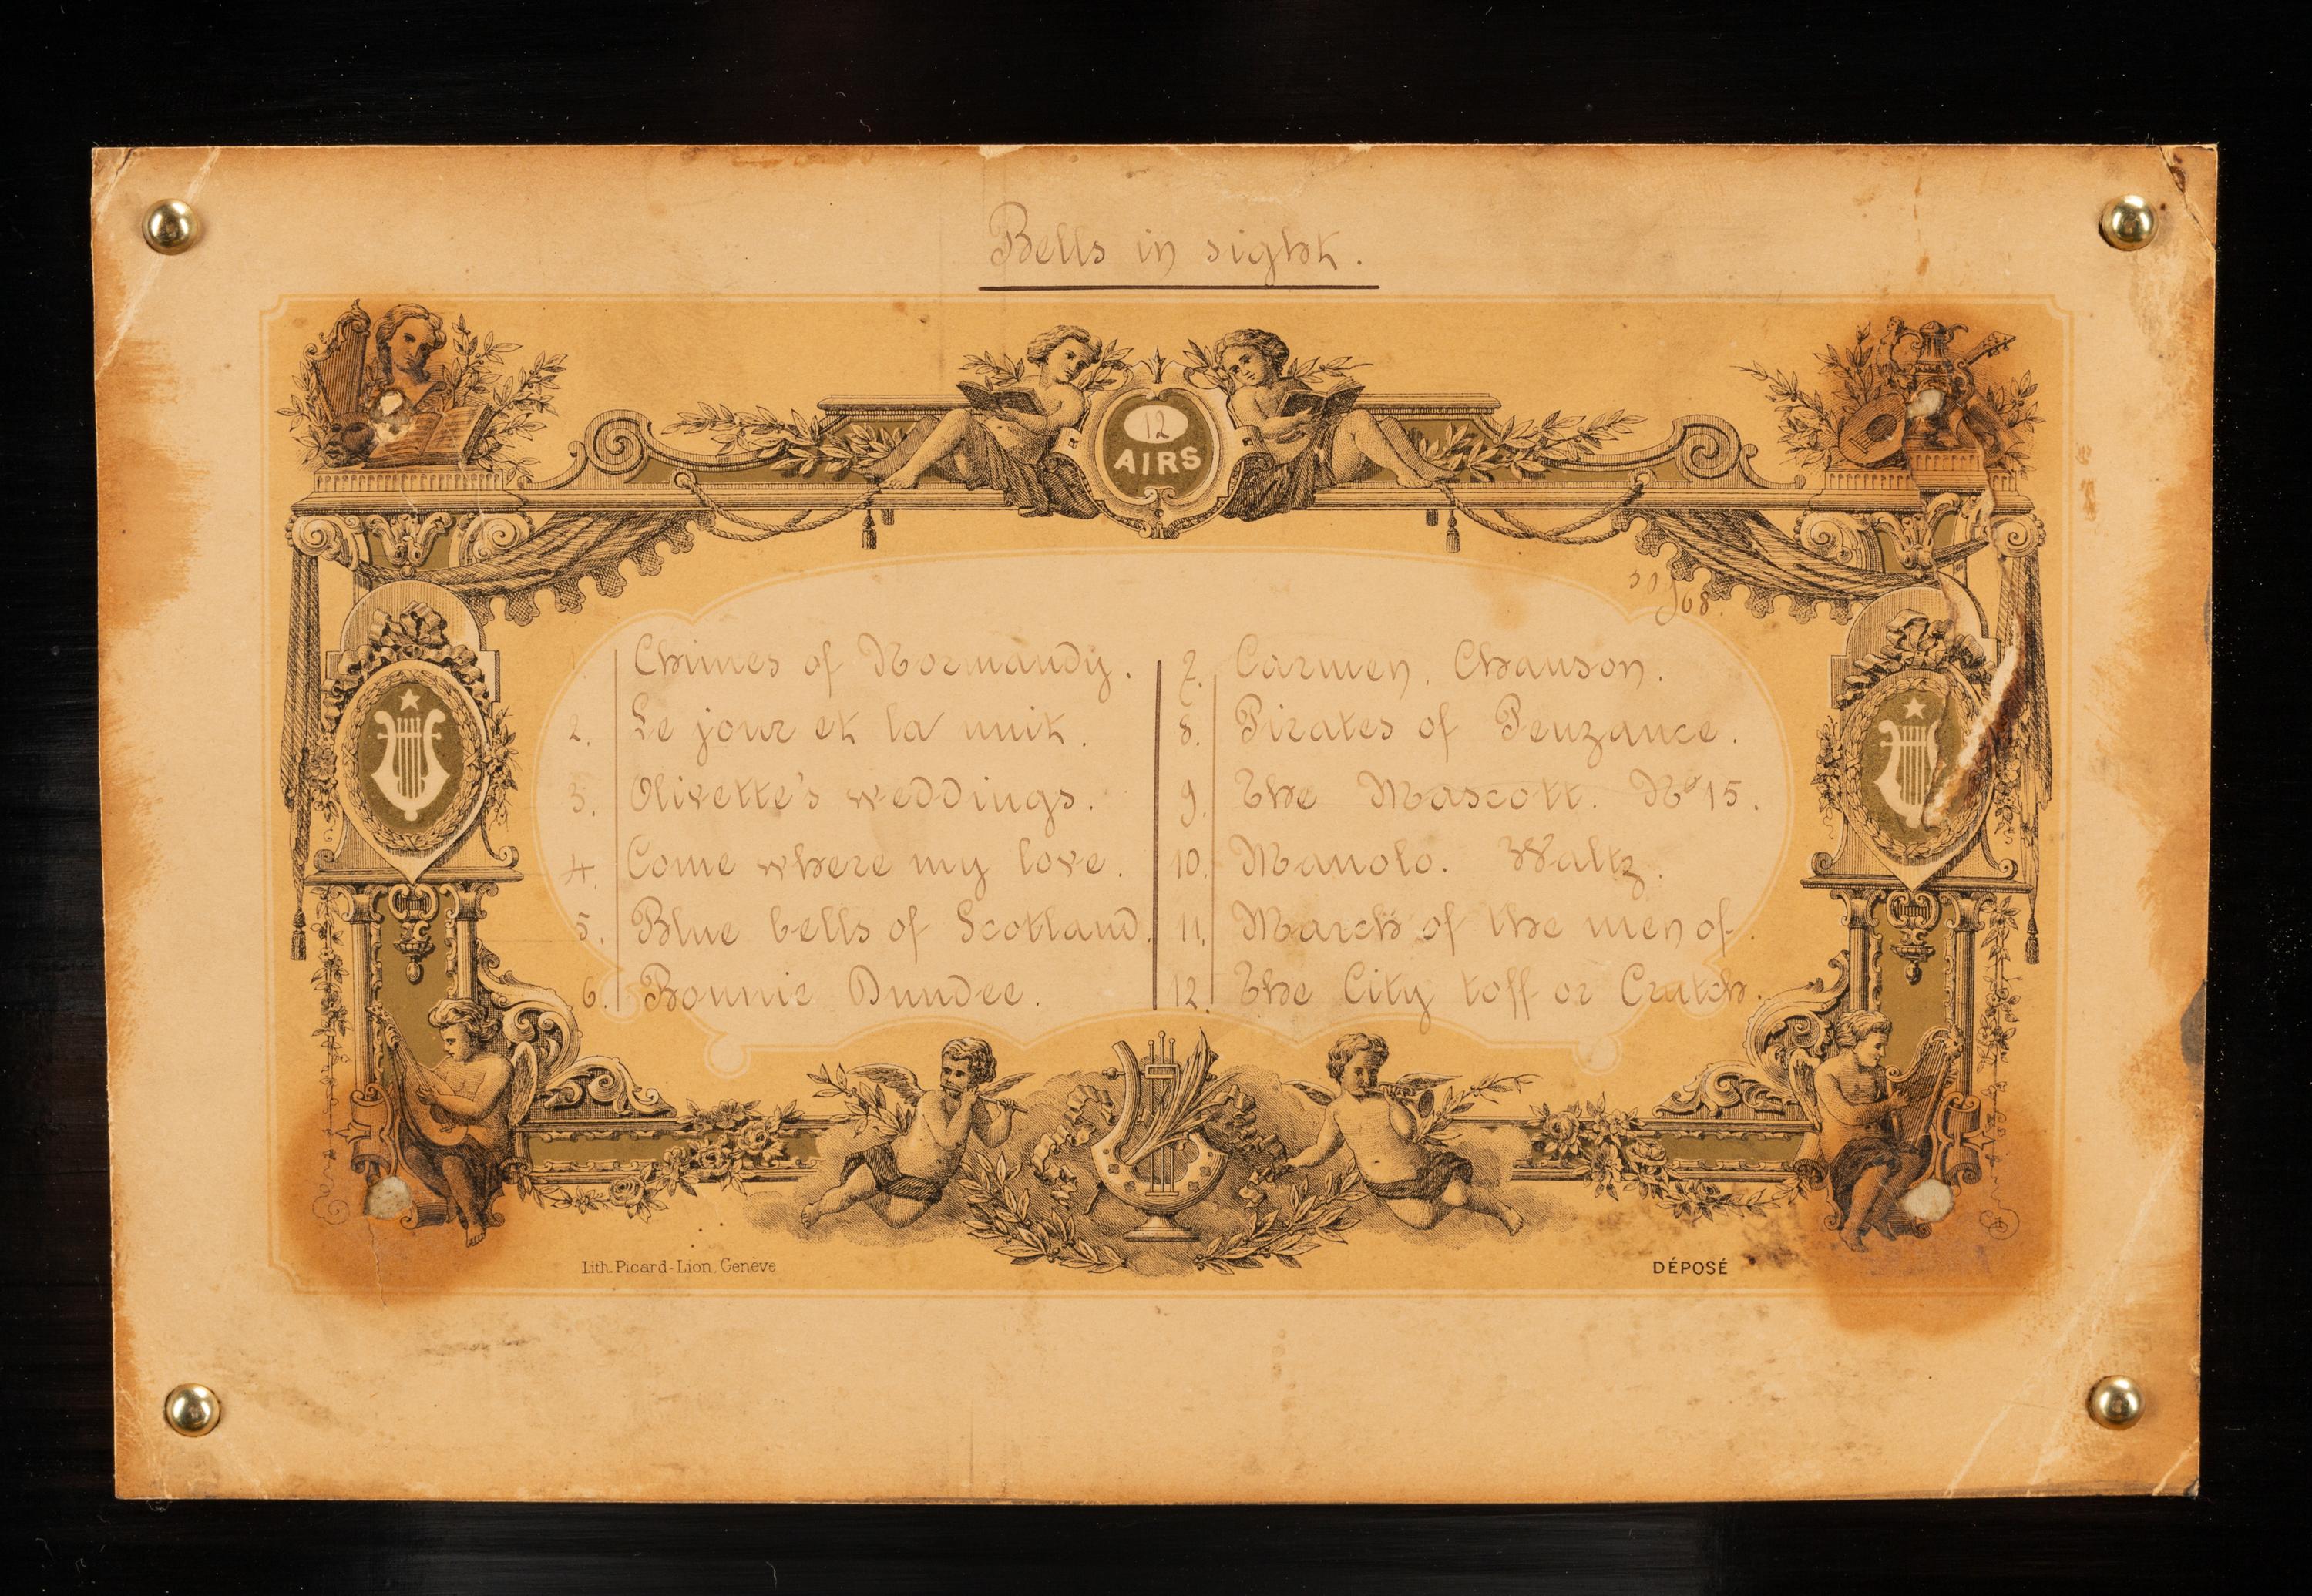 Bells in sight.
12
AIRS
1. Chimes of Normandy.
2. Le jour et la nuit.
3. Olivette's weddings.
4. Come where my love.
5. Blue bells of Scotland.
6. Bonnie Dundee.
7. Carmen. Chanson.
8. Pirates of Penzance.
9. The Mascott. No 15.
10. Manolo. Waltz.
11. March of the men of.
12. The City toff or Crutch.
Lith. Picard-Lion, Genève
DÉPOSÉ